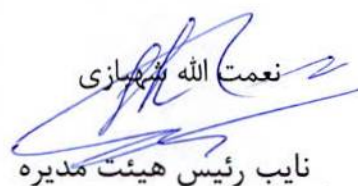 نعمت الله شهبازی
نایب رئیس هیئت مدیره